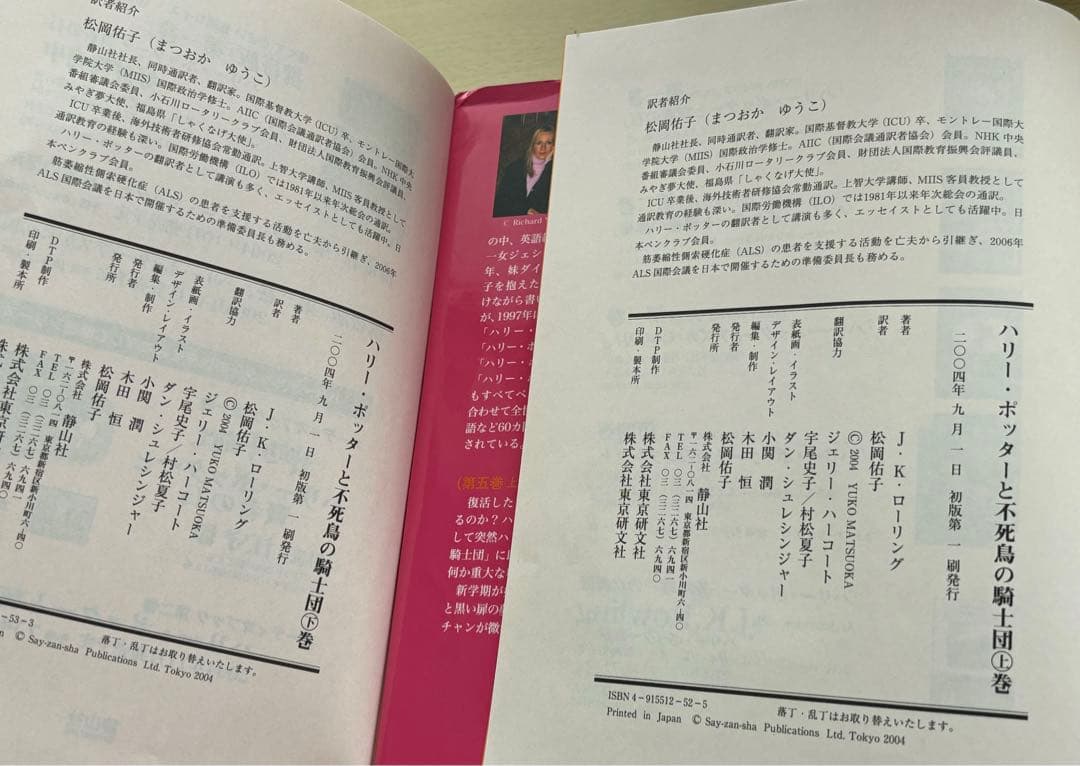 訳者紹介
松岡佑子(まつおか ゆうこ)
静山社社長、同時通訳者、翻訳家。国際基督教大学(ICU)卒、モントレー国際大
学院大学(MIIS)国際政治学修士。AIIC(国際会議通訳者協会)会員。NHK中央
番組審議会委員、小石川ロータリークラブ会員、財団法人国際教育振興会評議員、
みやぎ夢大使、福島県「しゃくなげ大使」。
ICU卒業後、海外技術者研修協会常勤通訳。上智大学講師、MIIS客員教授として
通訳教育の経験も深い。国際労働機構(ILO)では1981年以来年次総会の通訳。
ハリー・ポッターの翻訳者として講演も多く、エッセイストとしても活躍中。日
本ペンクラブ会員。
筋萎縮性側索硬化症(ALS)の患者を支援する活動を亡夫から引継ぎ、2006年
ALS国際会議を日本で開催するための準備委員長も務める。
ハリー・ポッターと不死鳥の騎士団㊦巻
二〇〇四年九月一日 初版第一刷発行
著者 J・K・ローリング
訳者 松岡佑子
©2004 YUKO MATSUOKA
翻訳協力 ジェリー・ハーコート
宇尾史子/村松夏子
表紙画・イラスト ダン・シュレシンジャー
デザイン・レイアウト 小関 潤
編集・制作 木田 恒
発行者 松岡佑子
発行所 株式会社 静山社
〒一六二-〇八一四 東京都新宿区新小川町六-四〇
TEL 〇三(三二六七)六九四一
FAX 〇三(三二六七)六九四〇
DTP制作 株式会社東京研文社
印刷・製本所 株式
-53-3
落丁・乱丁はお取り替えいたします。
n © Say-zan-sha Publications Ltd. Tokyo 2004
© Richard
の中、英語
一女ジェシ
年、妹ダイ
子を抱えた
けながら書い
が、1997年に
「ハリー・ポッ
「ハリー・ポ
「ハリー・
「ハリー・
もすべてベ
合わせて全世
語など60カ国
されている。
(第五巻 上
復活した
るのか?ハ
して突然ハ
騎士団」に
何か重大な
新学期が
と黒い扉の
チャンが微
訳者紹介
松岡佑子(まつおか ゆうこ)
静山社社長、同時通訳者、翻訳家。国際基督教大学(ICU)卒、モントレー国際大
学院大学(MIIS)国際政治学修士。AIIC(国際会議通訳者協会)会員。NHK中央
番組審議会委員、小石川ロータリークラブ会員、財団法人国際教育振興会評議員、
みやぎ夢大使、福島県「しゃくなげ大使」。
ICU卒業後、海外技術者研修協会常勤通訳。上智大学講師、MIIS客員教授として
通訳教育の経験も深い。国際労働機構(ILO)では1981年以来年次総会の通訳。
ハリー・ポッターの翻訳者として講演も多く、エッセイストとしても活躍中。日
本ペンクラブ会員。
筋萎縮性側索硬化症(ALS)の患者を支援する活動を亡夫から引継ぎ、2006年
ALS国際会議を日本で開催するための準備委員長も務める。
ハリー・ポッターと不死鳥の騎士団㊤巻
二〇〇四年九月一日 初版第一刷発行
著者 J・K・ローリング
訳者 松岡佑子
©2004 YUKO MATSUOKA
翻訳協力 ジェリー・ハーコート
宇尾史子/村松夏子
表紙画・イラスト ダン・シュレシンジャー
デザイン・レイアウト 小関 潤
編集・制作 木田 恒
発行者 松岡佑子
発行所 株式会社 静山社
〒一六二-〇八一四 東京都新宿区新小川町六-四〇
TEL 〇三(三二六七)六九四一
FAX 〇三(三二六七)六九四〇
DTP制作 株式会社東京研文社
印刷・製本所 株式会社東京研文社
ISBN4-915512-52-5
落丁・乱丁はお取り替えいたします。
Printed in Japan © Say-zan-sha Publications Ltd. Tokyo 2004